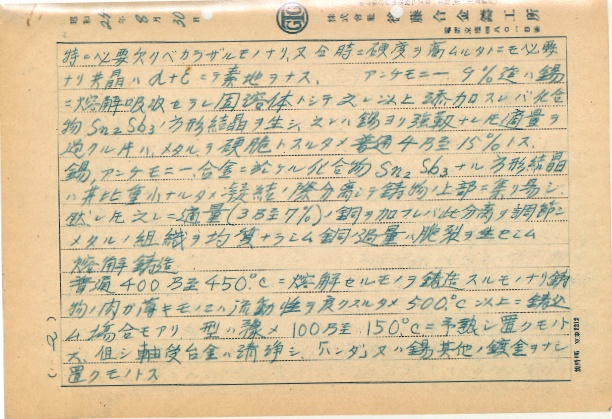 昭和24年8月30日
株式會社 後藤合金鑄工所
特ニ必要欠リベカラザルモノナリ、又合時ニ硬度ヲ高ムルタメニモ必要
ナリ共晶ハα+εニテ素地ヲナス、 アンチモニー 9%迄ハ錫
ニ熔解吸收セラレ固溶体トシテ之レ以上添加スレバ化合
物Sn2Sb3ノ方形結晶ヲ生シ、之レハ錫ヨリ強靱ナレ圧適量ヲ
過クル片ハ、メタルヲ硬脆トスルタメ普通4乃至15%トス、
錫、アンチモニー、合金ニ於ケル化合物Sn2Sb3ナル方形結晶
ハ其比重小ナルタメ凝結ノ際分離シテ鋳物ノ上部ニ集リ易シ、
然レ圧之レニ適量(3乃至7%)ノ銅ヲ加フレバ此分離ヲ調節シ
メタルノ組織ヲ均質ナラシム銅ノ過量ハ脆裂ヲ生セシム
熔解鋳造
普通400乃至450°Cニ熔解セルモノヲ鋳造スルモノナリ鋳
物ノ肉カ薄キモノニハ流動性ヲ良クスルタメ500°C以上ニ鋳込
ム場合モアリ 型ハ濃メ100乃至150°Cニ予熱シ置クモノト
ス、但シ軸受台金ハ清浄シ、「ハンダ」又ハ錫其他ノ鍍金ヲナシ
置クモノトス
(-2-)